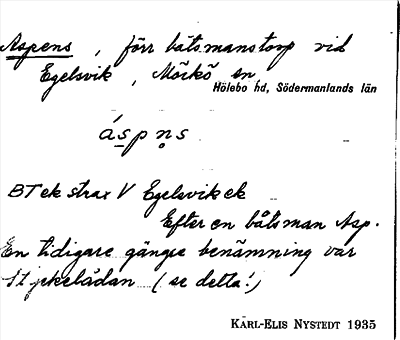 Aspens, förr båtsmanstorp vid
Egelsvik, Mörkö sn
Hölebo hd, Södermanlands län
áspn̥s
BT ek strax V Egelsvik ek
Efter en båtsman Asp.
En tidigare gängse benämning var
Stjekelådan (se detta!)
KARL-ELIS NYSTEDT 1935